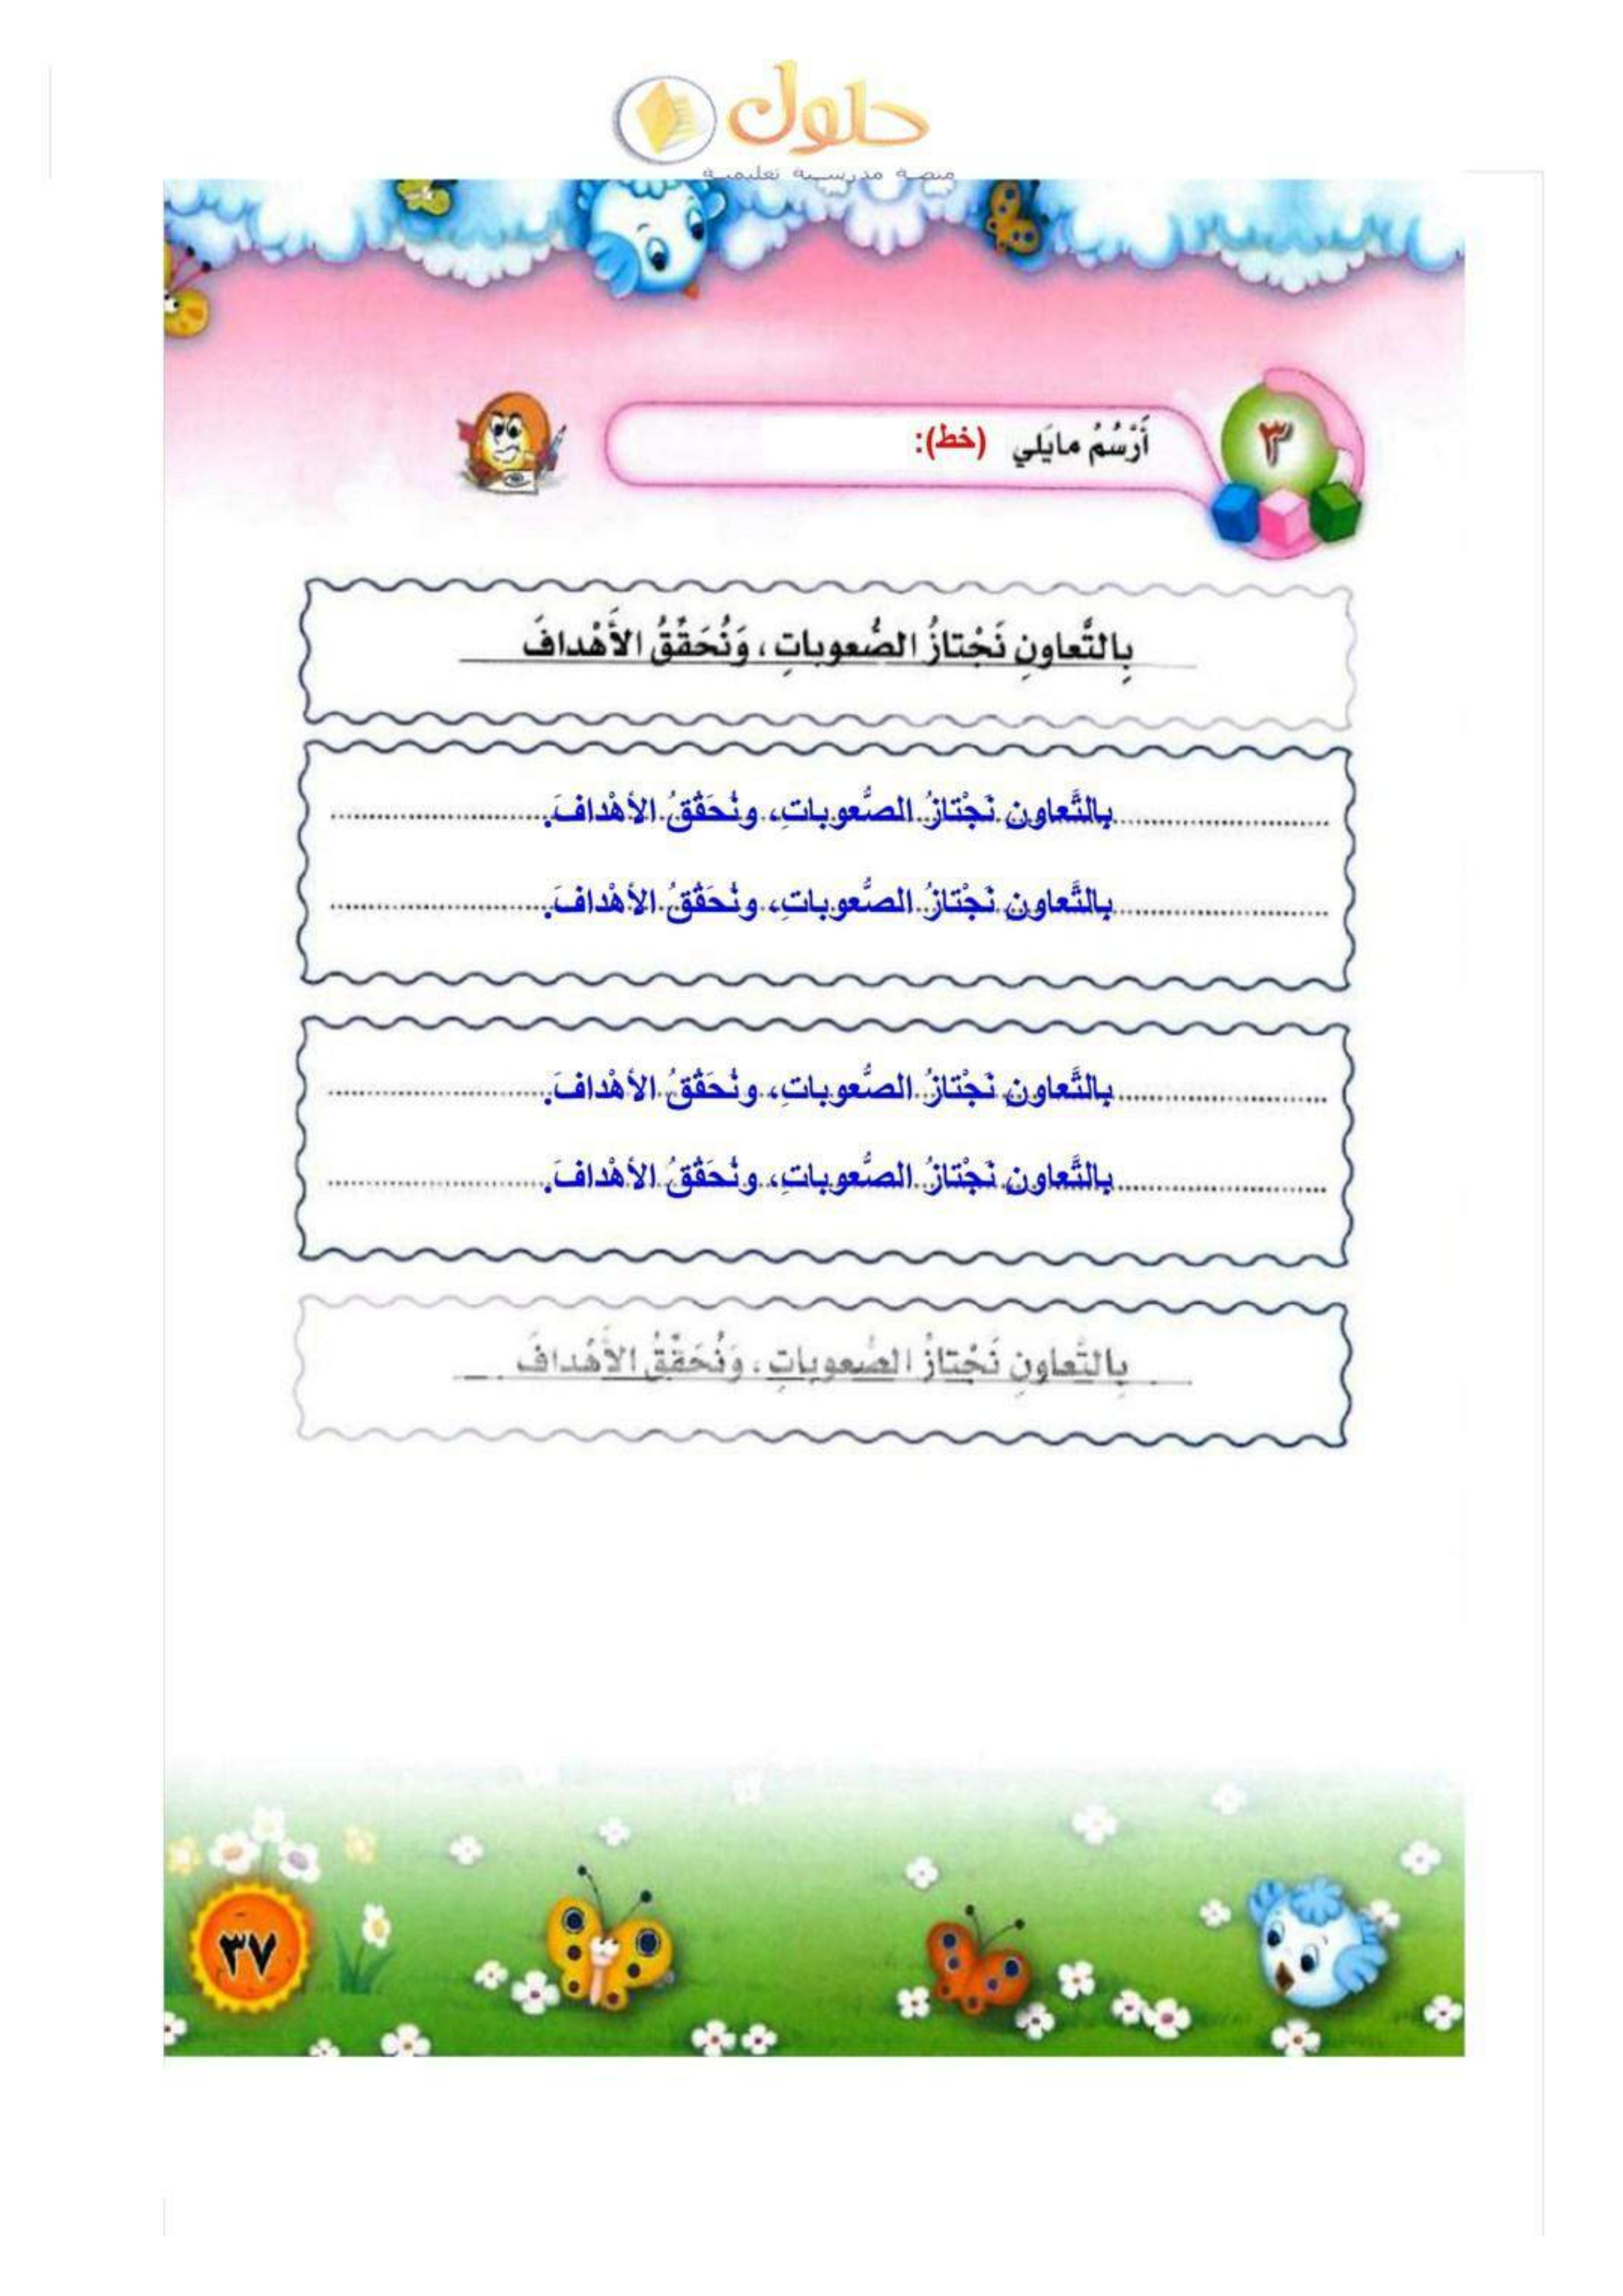 حلول
منصة مدرسية تعليمية
٣
أَرْسُمُ مايَلي (خط):
بِالتَّعاونِ نَجْتازُ الصُّعوباتِ، وَنُحَقِّقُ الأَهْدافَ
بالتَّعاونِ نَجْتازُ الصُّعوباتِ، ونُحَقِّقُ الأهْدافَ.
بالتَّعاونِ نَجْتازُ الصُّعوباتِ، ونُحَقِّقُ الأهْدافَ.
بالتَّعاونِ نَجْتازُ الصُّعوباتِ، ونُحَقِّقُ الأهْدافَ.
بالتَّعاونِ نَجْتازُ الصُّعوباتِ، ونُحَقِّقُ الأهْدافَ.
بِالتَّعاونِ نَجْتازُ الصُّعوباتِ، وَنُحَقِّقُ الأَهْدافَ
٣٧